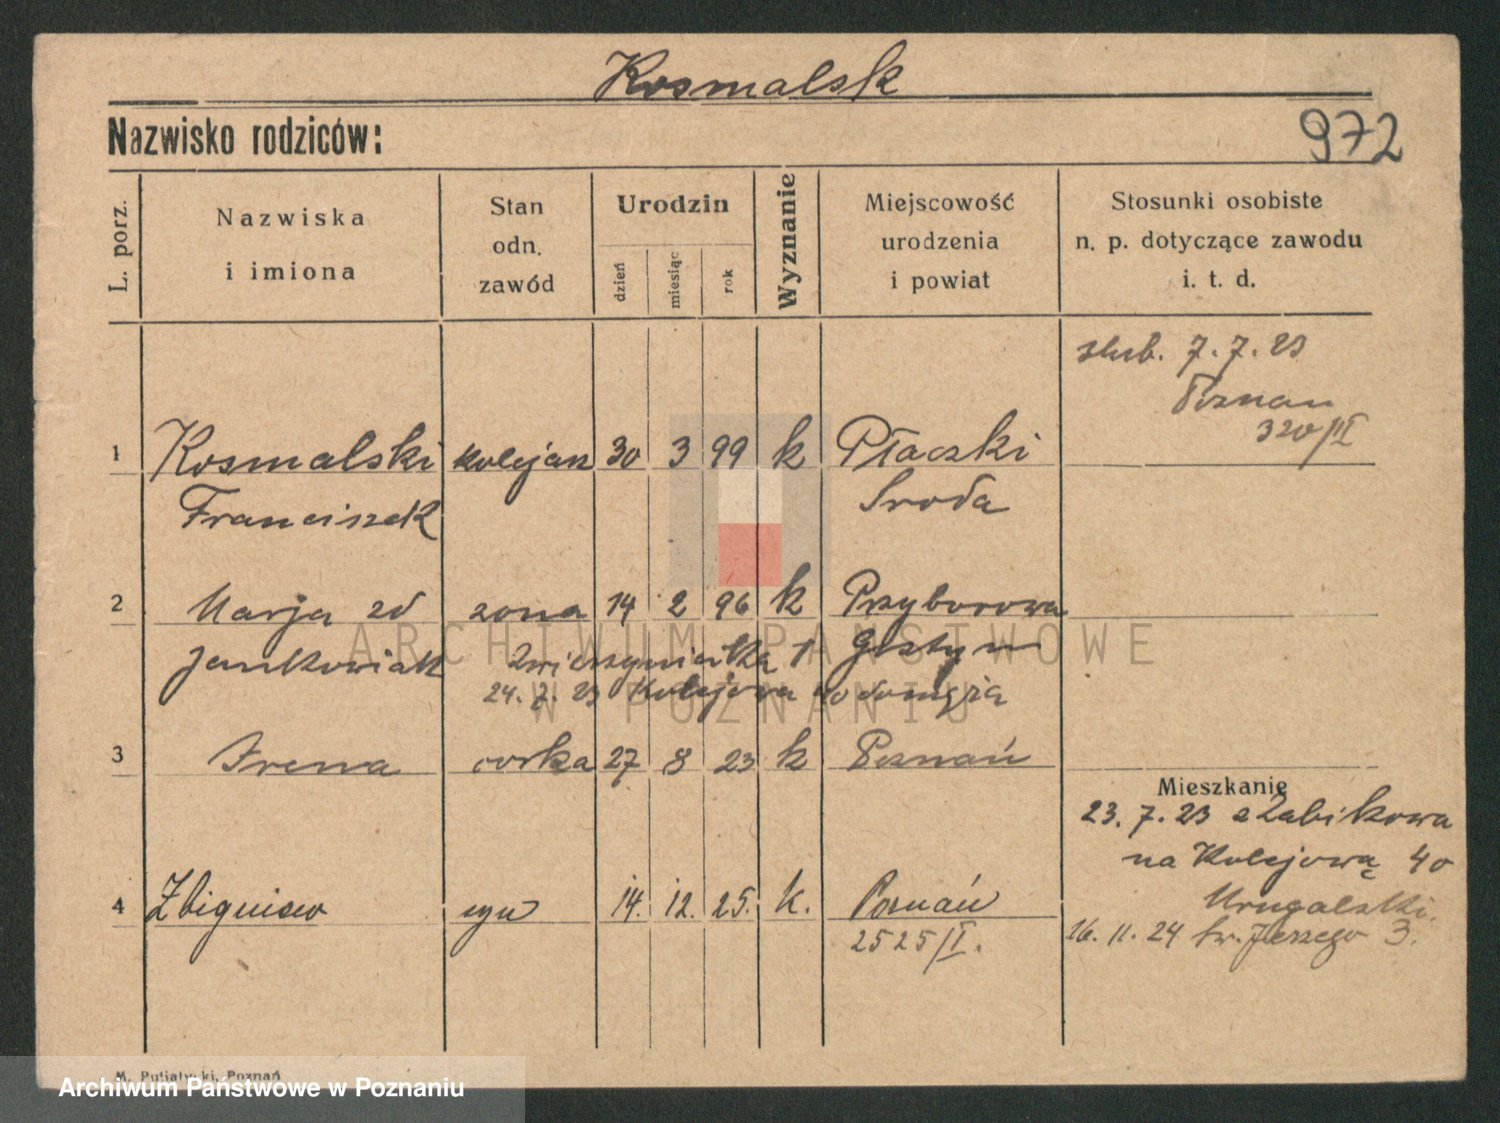 Kosmalsk
972
Nazwisko rodziców:
L. porz.
Nazwiska
i imiona
Stan
odn.
zawód
Urodzin
dzień
miesiąc
rok
Wyznanie
Miejscowość
urodzenia
i powiat
Stosunki osobiste
n. p. dotyczące zawodu
i. t. d.
slub. 7. 7. 23
Poznan
320/II
1 Kosmalski kolejarz 30 3 99 k Płaczki
Franciszek Sroda
2 Marja zd zona 14 2 96 k Przyborowa
Jankowiak Zwierzyniecka 1 Gostyn
24. 7. 23 Kolejowa 40
3 Irena corka 27 8 23 k Poznań
Mieszkanie
23. 7. 23 z Żabikowa
na Kolejową 40
4 Zbigniew syn 14. 12. 25. k. Poznań
2525/I.
16. 11. 24 3.
M. Putiatycki, Poznań
ARCHIWUM PAŃSTWOWE
W POZNANIU
Archiwum Państwowe w Poznaniu